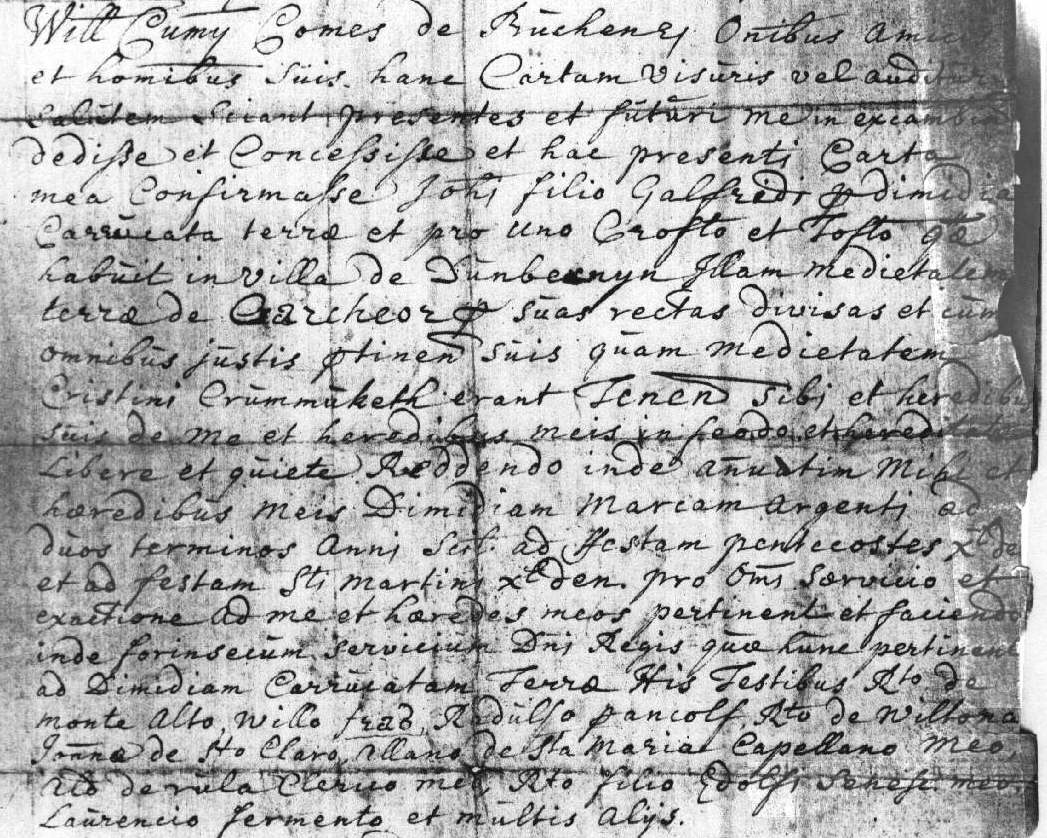 Will Cumÿ Comes de Buchen Omibus amicis
et hominibus suis hanc Cartam visuris vel audituris
Salutem Sciant presentes et futuri me in excambio
dedisse et Concessisse et hac presenti Carta
mea Confirmasse Johi filio Galfredi p dimidie
Carrucata terræ et pro uno Crofto et Tofto qœ
habuit in villa de Dunbernyn Illam medietatem
terræ de Garcheor p suas rectas divisas et cum
omnibus justis ptinen suis quam medietatem
Cristini Crummuketh erant Tenend sibi et heredibus
suis de me et heredibus meis in feodo et hereditate
Libere et quiete Reddendo inde añuatim Mihi et
hæredibus meis Dimidiam Marcam argenti ad
duos terminos Anni Scil ad Festam pentecostes xl de
et ad festam Sti martini xl den. pro omi særvicio et
exactione ad me et hæredes meos pertinent et faciendo
inde forinsecum servicium Dni Regis quæ hunc pertinent
ad Dimidiam Carrucatam Terræ His Testibus Rto de
monte Alto, Willo frad, Radulfo pancolf, Rto de Wiltona
de Sto Claro, de Sta Maria Capellano meo,
de rula Clerico meo, Rto filio Edolfi Senesc meo,
Laurencio fermento et multis alijs.